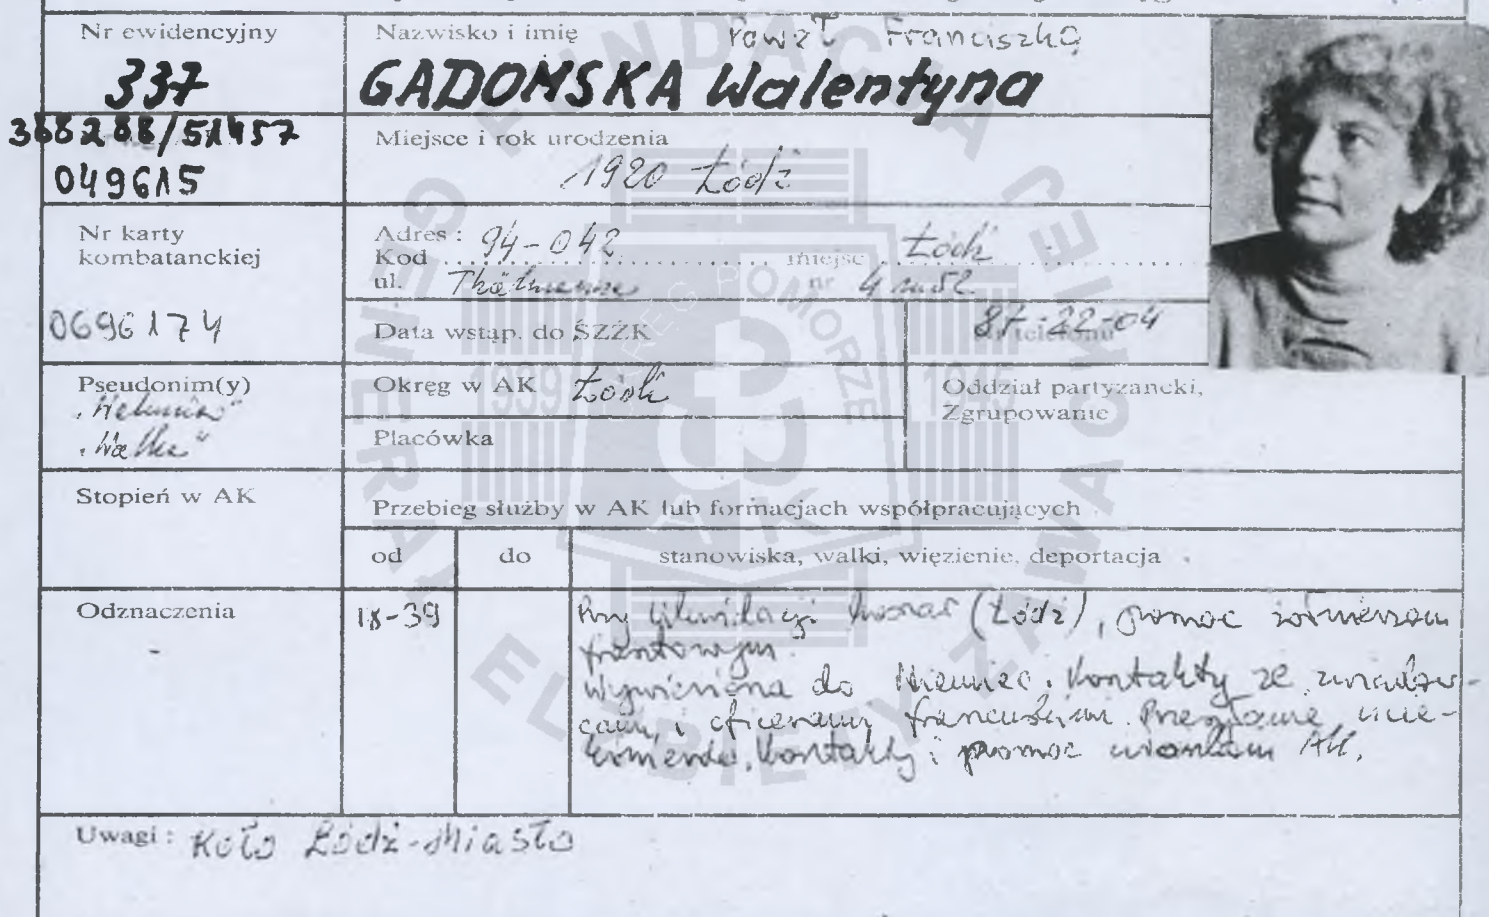 Nr ewidencyjny
337
388288/51457
049615
Nazwisko i imię Paweł Franciszka
GADOMSKA Walentyna
Miejsce i rok urodzenia
1920 Łódź
Nr karty
kombatanckiej
0696174
Adres :
Kod 94-042 miejsc Łódź
ul. nr 4 m 52
Data wstąp. do ŚZŻK
87-22-04
Nr telefonu
Pseudonim(y)
Okręg w AK Łódź
Placówka
Oddział partyzancki,
Zgrupowanie
Stopień w AK
Przebieg służby w AK lub formacjach współpracujących
od
do
stanowiska, walki, więzienie, deportacja
Odznaczenia
-
IX-39
Przy likwidacji koszar (Łódź), pomoc żołnierzom
frontowym.
Wywieziona do Niemiec. Kontakty ze
i oficerami francuskimi.
Kontakty i pomoc AK.
Uwagi : Koło Łódź-Miasto
FUNDACJA GENERAŁ ELŻBIETY ZAWACKIEJ
1939 1945
AK
POMORZE